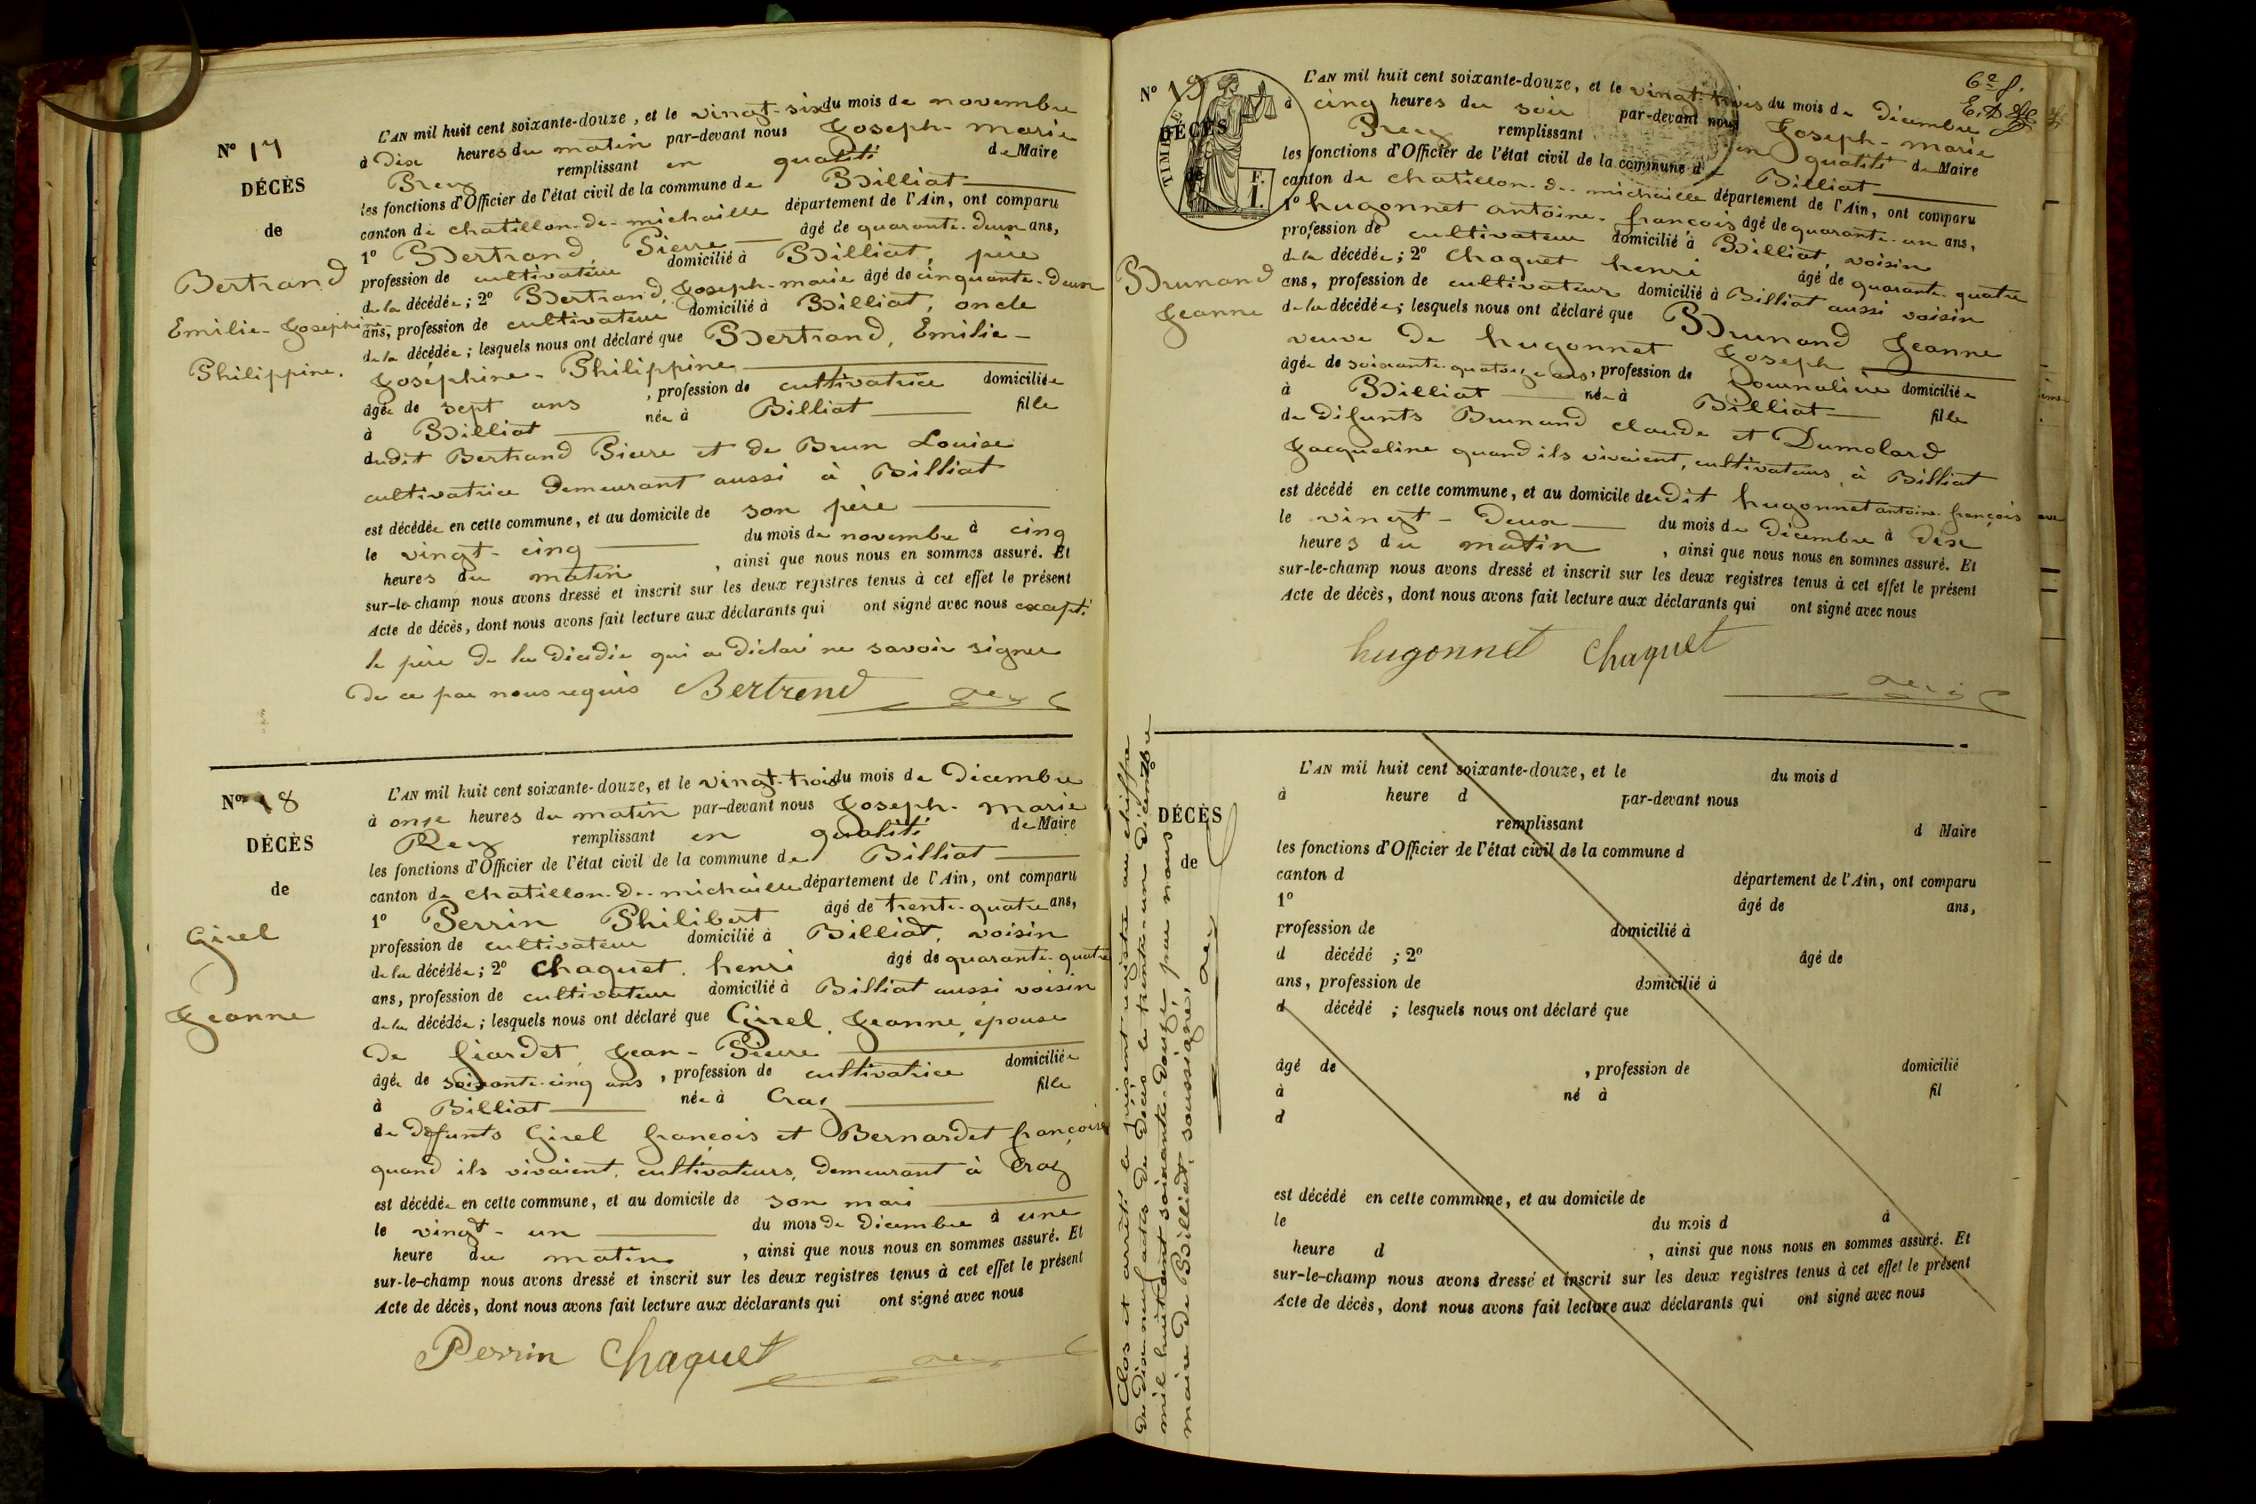 N° 17
DÉCÈS
de
Bertrand
Emilie-Josephine
Philippine.
L'AN mil huit cent soixante-douze, et le vingt-six du mois de novembre
à dix heures du matin par-devant nous Joseph-marie
Rey remplissant en qualité de Maire
les fonctions d'Officier de l'état civil de la commune de Billiat
canton de chatillon-de-michaille département de l'Ain, ont comparu
1° Bertrand, Pierre âgé de quarante-deux ans,
profession de cultivateur domicilié à Billiat, père
de la décédée; 2° Bertrand, Joseph-marie âgé de cinquante-deux
ans, profession de cultivateur domicilié à Billiat, oncle
de la décédée; lesquels nous ont déclaré que Bertrand, Emilie-
Joséphine-Philippine
âgée de sept ans, profession de cultivatrice domiciliée
à Billiat née à Billiat fille
dudit Bertrand Pierre et de Brun Louise
cultivatrice demeurant aussi à Billiat
est décédée en cette commune, et au domicile de son père
le vingt-cinq du mois de novembre à cinq
heures du matin, ainsi que nous nous en sommes assuré. Et
sur-le-champ nous avons dressé et inscrit sur les deux registres tenus à cet effet le présent
Acte de décès, dont nous avons fait lecture aux déclarants qui ont signé avec nous excepté
le père de la décédée qui a déclaré ne savoir signer
de ce par nous requis Bertrend Rey
N° 18
DÉCÈS
de
Girel
Jeanne
L'AN mil huit cent soixante-douze, et le vingt-trois du mois de décembre
à onze heures du matin par-devant nous Joseph-marie
Rey remplissant en qualité de Maire
les fonctions d'Officier de l'état civil de la commune de Billiat
canton de chatillon-de-michaille département de l'Ain, ont comparu
1° Perrin Philibert âgé de trente-quatre ans,
profession de cultivateur domicilié à Billiat, voisin
de la décédée; 2° Chaquet, henri âgé de quarante-quatre
ans, profession de cultivateur domicilié à Billiat aussi voisin
de la décédée; lesquels nous ont déclaré que Girel, Jeanne, épouse
de Jean-Pierre
âgée de soixante-cinq ans, profession de cultivatrice domiciliée
à Billiat née à Craz fille
de défunts Girel françois et Bernardet françoise
quand ils vivaient, cultivateurs, demeurant à Craz
est décédée en cette commune, et au domicile de son mari
le vingt-un du mois de décembre à une
heure du matin, ainsi que nous nous en sommes assuré. Et
sur-le-champ nous avons dressé et inscrit sur les deux registres tenus à cet effet le présent
Acte de décès, dont nous avons fait lecture aux déclarants qui ont signé avec nous
Perrin Chaquet Rey
N° 19
TIMBRE
F. 1.
DÉCÈS
de
Brunand
Jeanne
L'AN mil huit cent soixante-douze, et le vingt-trois du mois de décembre
à cinq heures du soir par-devant nous Joseph-marie
Rey remplissant en qualité de Maire
les fonctions d'Officier de l'état civil de la commune de Billiat
canton de chatillon-de-michaille département de l'Ain, ont comparu
1° hugonnet antoine-françois âgé de quarante-un ans,
profession de cultivateur domicilié à Billiat, voisin
de la décédée; 2° Chaquet henri âgé de quarante-quatre
ans, profession de cultivateur domicilié à Billiat aussi voisin
de la décédée; lesquels nous ont déclaré que Brunand Jeanne
veuve de hugonnet Joseph
âgée de soixante-quatorze ans, profession de Journalière domiciliée
à Billiat née à Billiat fille
de défunts Brunand claude et Dumolard
Jacqueline quand ils vivaient, cultivateurs, à Billiat
est décédé en cette commune, et au domicile dudit hugonnet antoine-françois
le vingt-deux du mois de décembre à dix
heures du matin, ainsi que nous nous en sommes assuré. Et
sur-le-champ nous avons dressé et inscrit sur les deux registres tenus à cet effet le présent
Acte de décès, dont nous avons fait lecture aux déclarants qui ont signé avec nous
hugonnet Chaquet Rey
Clos et arrêté le présent registre au chiffre
de dix-neuf actes de décès le trente-un décembre
mil huit cent soixante-douze, par nous
maire de Billiat, soussigné, Rey
DÉCÈS
de
L'AN mil huit cent soixante-douze, et le du mois d
à heure d par-devant nous
remplissant d Maire
les fonctions d'Officier de l'état civil de la commune d
canton d département de l'Ain, ont comparu
1° âgé de ans,
profession de domicilié à
d décédé ; 2° âgé de
ans, profession de domicilié à
d décédé ; lesquels nous ont déclaré que
âgé de , profession de domicilié
à né à fil
d
est décédé en cette commune, et au domicile de
le du mois d à
heure d , ainsi que nous nous en sommes assuré. Et
sur-le-champ nous avons dressé et inscrit sur les deux registres tenus à cet effet le présent
Acte de décès, dont nous avons fait lecture aux déclarants qui ont signé avec nous